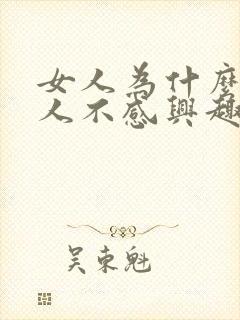 女人為什麼
人不感興趣
吳東魁